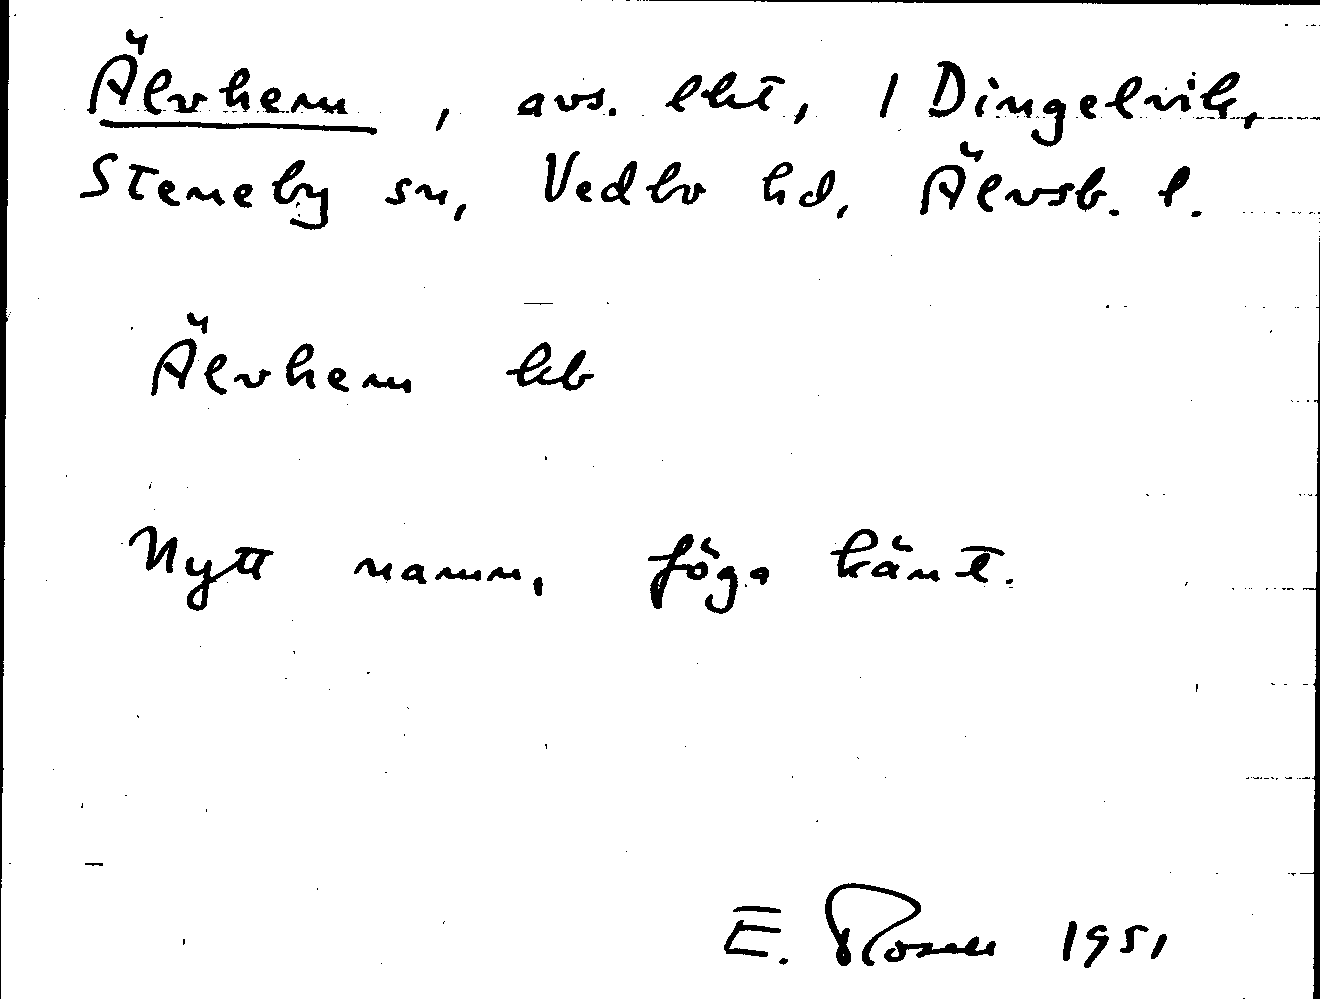 Älvhem, avs. lht, 1 Dingelvik,
Steneby sn, Vedbo hd, Älvsb. l.
Älvhem kb
Nytt namn, föga känt.
E. Rosell 1951